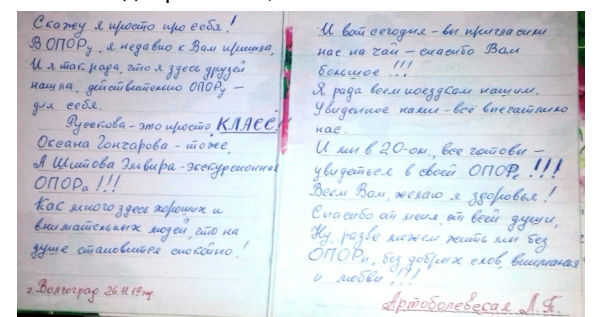 Скажу я просто про себя!
В ОПОРу, я недавно к Вам пришла,
И я так рада, что я здесь друзей
нашла, действительно ОПОРу –
для себя.
Русскова – это просто КЛАСС!
Оксана Гончарова – тоже,
А Шитова Эльвира – экскурсионная
ОПОРа !!!
Как много здесь хороших и
внимательных людей, что на
душе становится спокойно!
г. Волгоград 26.11.19гр.
И вот сегодня – вы пригласили
нас на чай – спасибо Вам
большое !!!
Я рада всем поездкам нашим,
Увиденное нами – всё впечатлило
нас.
И мы в 20-ом, все готовы –
увидеться в своей ОПОРе !!!
Всем Вам, желаю я здоровья!
Спасибо от меня, от всей души,
Ну, разве можем жить мы без
ОПОРы, без добрых слов, внимания
и любви !!!
Артоболевская Л.П.